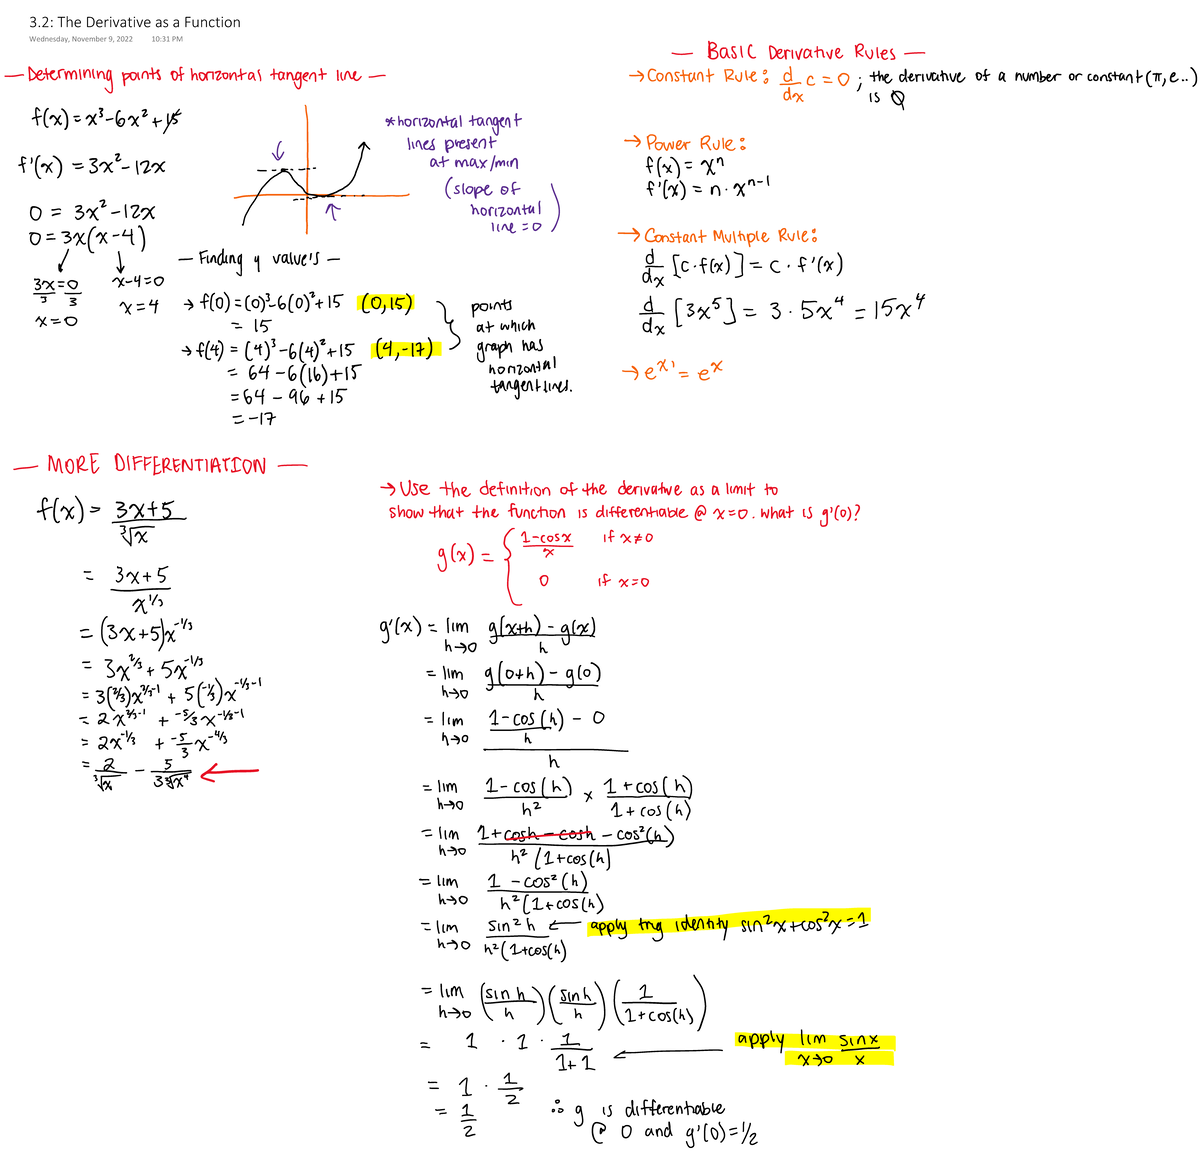 3.2: The Derivative as a Function
Wednesday, November 9, 2022 10:31 PM
— Determining points of horizontal tangent line —
f(x) = x³-6x²+15
f'(x) = 3x²-12x
0 = 3x²-12x
0 = 3x(x-4)
3x=0 x-4=0
3 3
x=0 x=4
*horizontal tangent
lines present
at max/min
(slope of
horizontal
line =0)
— Finding y value's —
→ f(0) = (0)³-6(0)²+15 (0,15)
= 15
→ f(4) = (4)³-6(4)²+15 (4,-17)
= 64-6(16)+15
= 64-96+15
= -17
points
at which
graph has
horizontal
tangent lines.
— BASIC Derivative Rules —
→ Constant Rule: d/dx c = 0 ; the derivative of a number or constant (π, e..)
is 0
→ Power Rule:
f(x) = xⁿ
f'(x) = n·xⁿ⁻¹
→ Constant Multiple Rule:
d/dx [c·f(x)] = c·f'(x)
d/dx [3x⁵] = 3·5x⁴ = 15x⁴
→ eˣ' = eˣ
— MORE DIFFERENTIATION —
f(x) = 3x+5 / ³√x
= 3x+5 / x^1/3
= (3x+5)x^-1/3
= 3x^2/3 + 5x^-1/3
= 3(2/3)x^2/3-1 + 5(-1/3)x^-1/3-1
= 2x^2/3-1 + -5/3x^-1/3-1
= 2x^-1/3 + -5/3 x^-4/3
= 2/³√x - 5/3³√x⁴
→ Use the definition of the derivative as a limit to
show that the function is differentiable @ x=0. What is g'(0)?
g(x) = { 1-cosx / x if x≠0
0 if x=0
g'(x) = lim h→0 g(x+h) - g(x) / h
= lim h→0 g(0+h) - g(0) / h
= lim h→0 1-cos(h) / h - 0 / h
= lim h→0 1-cos(h) / h² × 1+cos(h) / 1+cos(h)
= lim h→0 1+cosh-cosh-cos²(h) / h²(1+cos(h)
= lim h→0 1-cos²(h) / h²(1+cos(h)
= lim h→0 sin²h / h²(1+cos(h) ← apply trig identity sin²x+cos²x=1
= lim h→0 (sin h / h) (sin h / h) (1 / 1+cos(h))
= 1 · 1 · 1 / 1+1 ← apply lim x→0 sinx / x
= 1 · 1/2
= 1/2
∴ g is differentiable
@ 0 and g'(0)=1/2